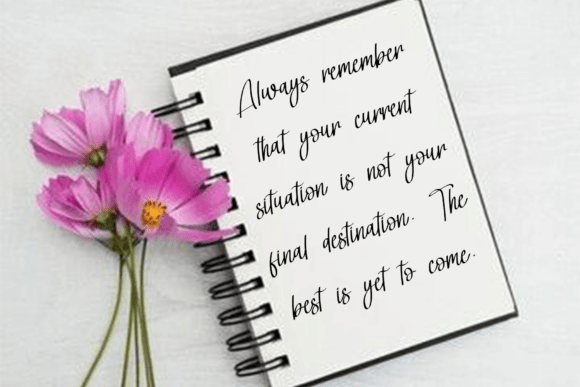 Always remember
that your current
situation is not your
final destination. The
best is yet to come.